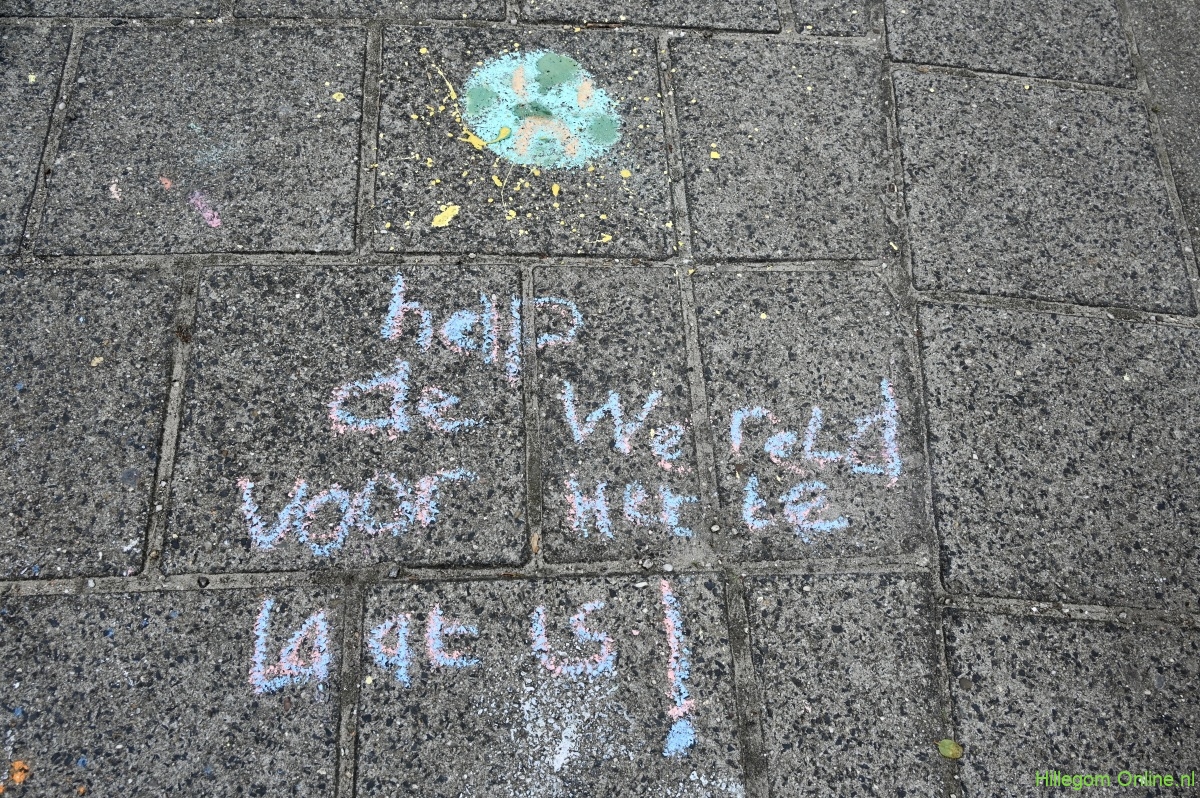 help
de Wereld
voor Het te
laat is!
Hillegom Online.nl